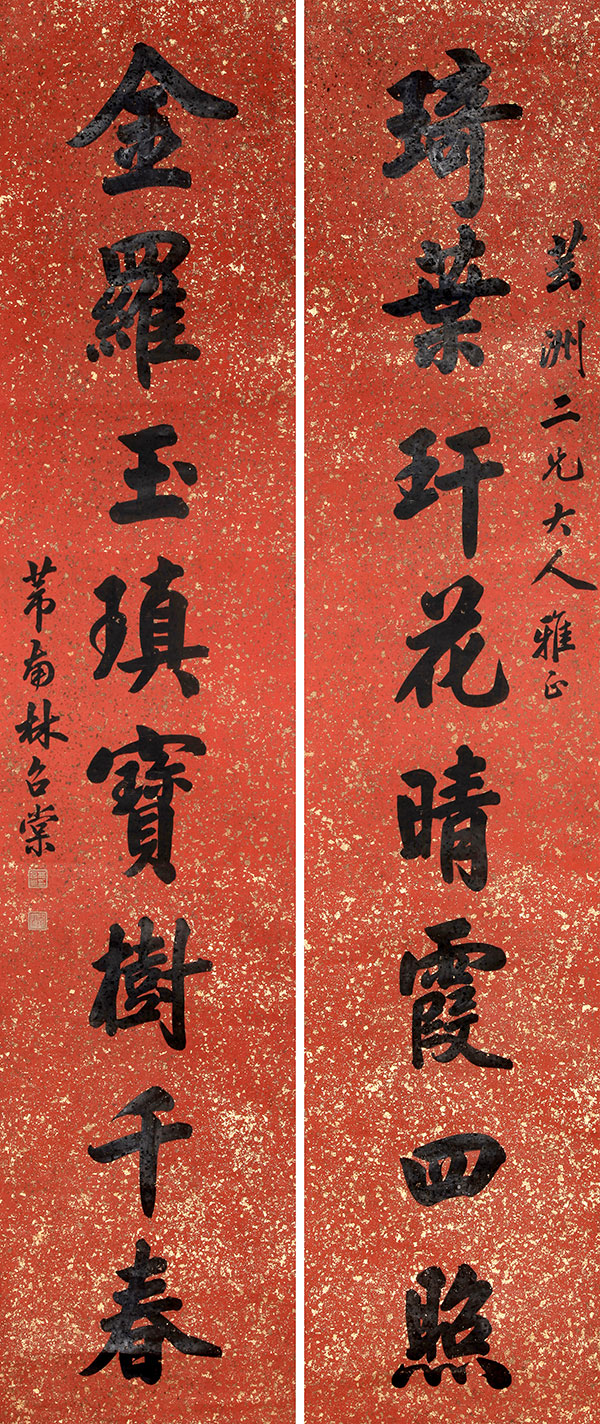 芸洲二兄大人雅正
琦葉玕花晴霞四照
金羅玉瑱寶樹千春
芾南林召棠